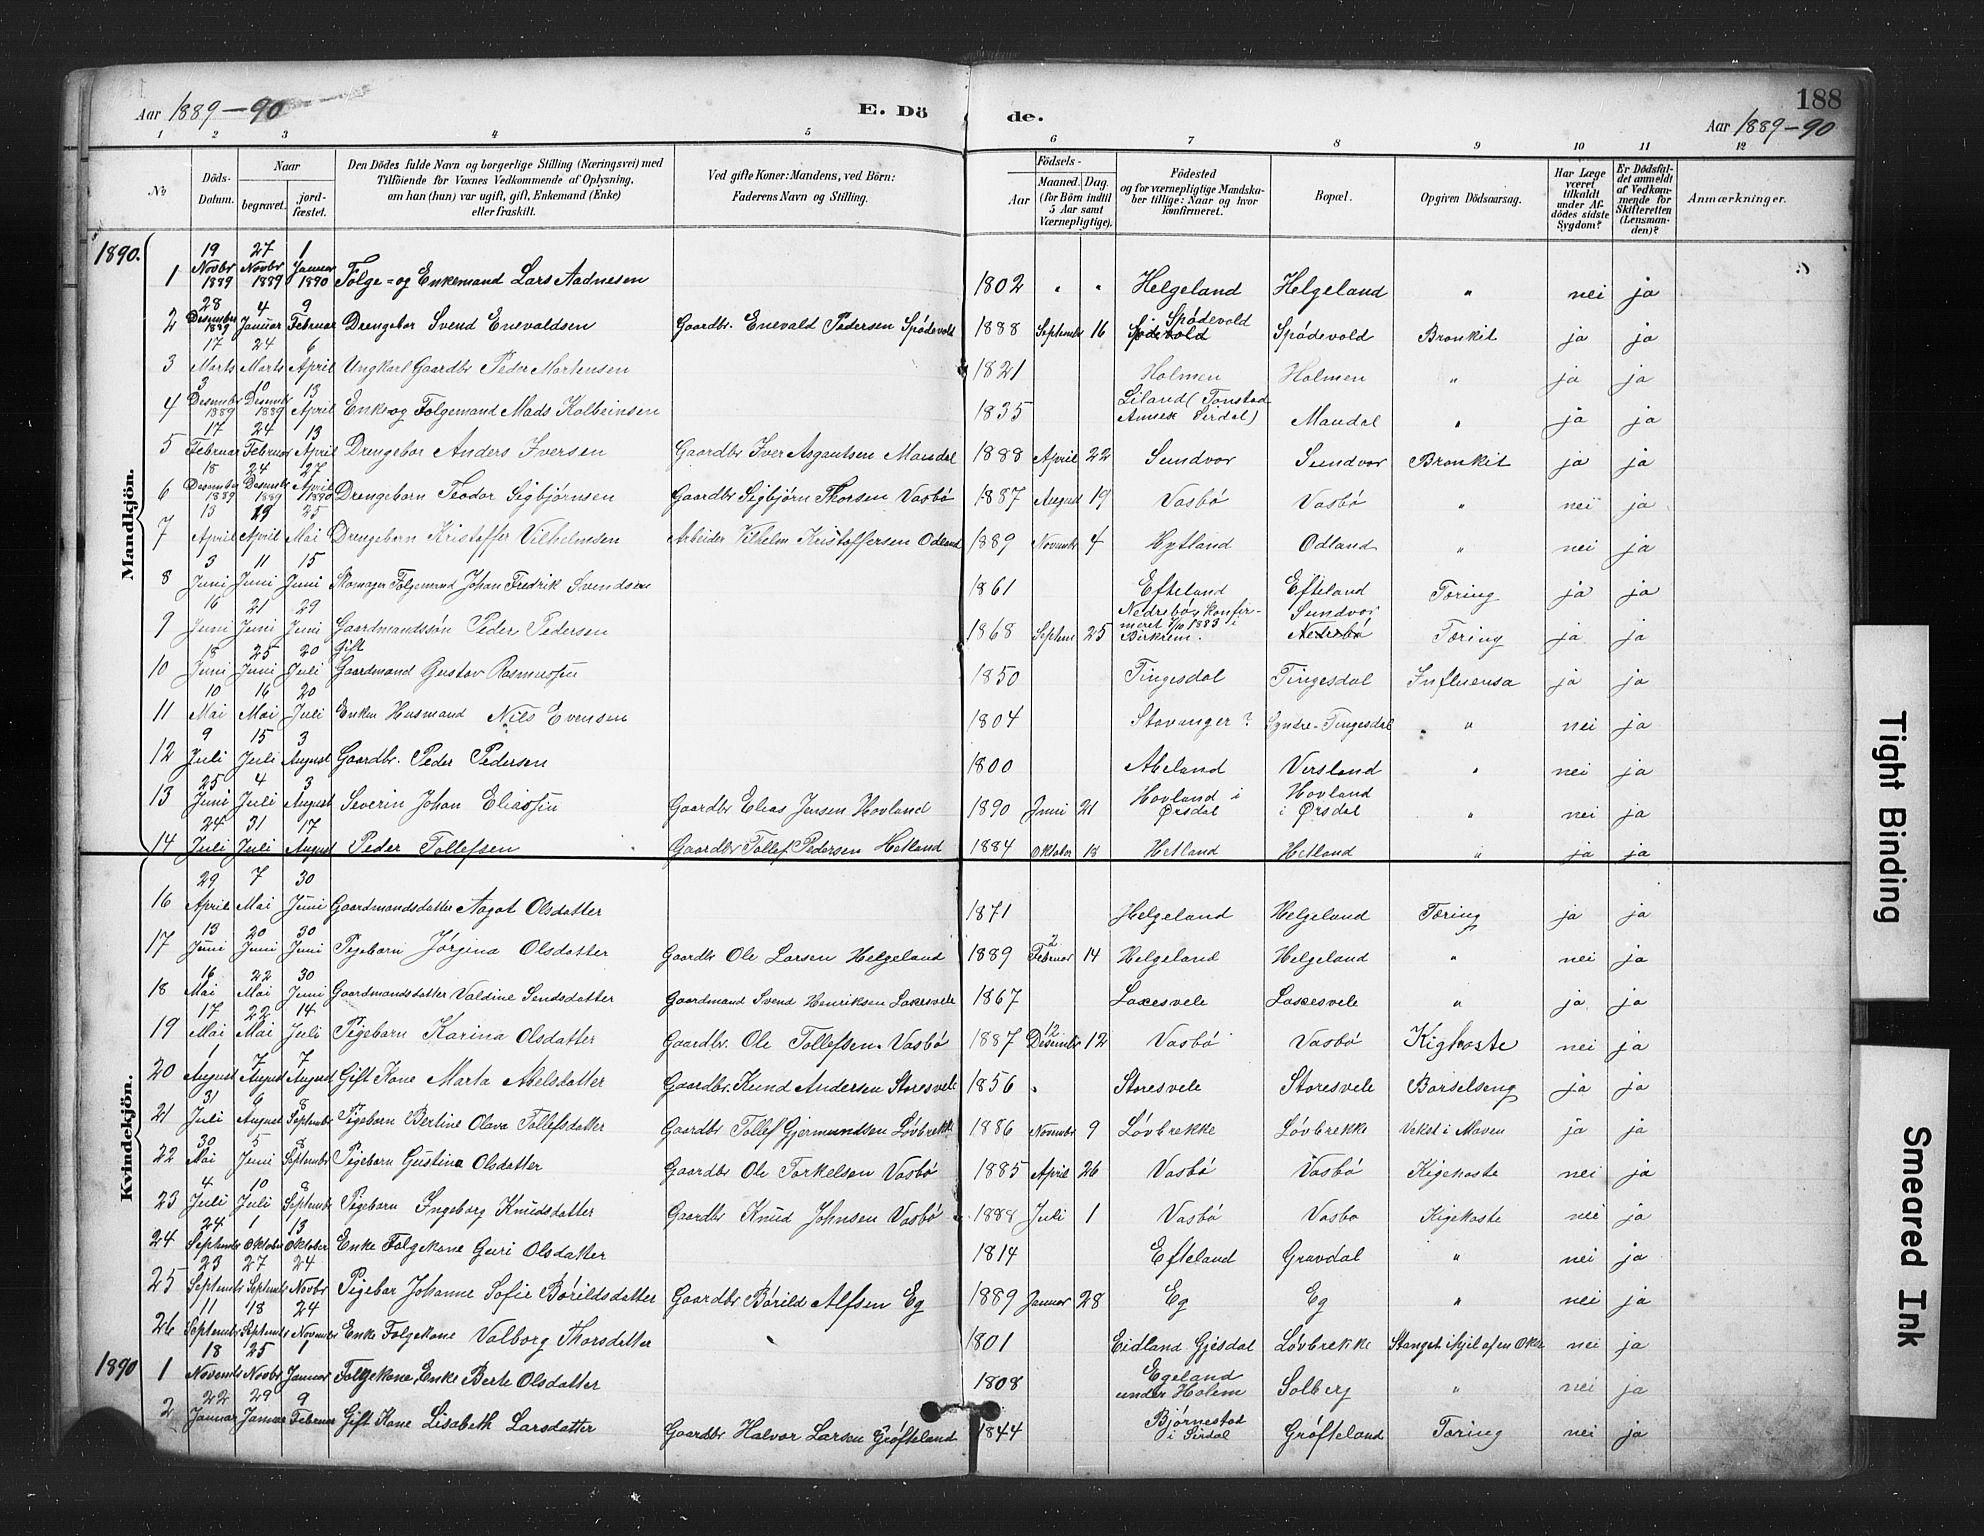 Aar 1889-90 E. Dö de. 188
Aar 1889-90
1 2 3 4 5 6 7 8 9 10 11 12
No Döds-Datum. Naar begravet. jordfæstet. Den Dödes fulde Navn og borgerlige Stilling (Næringsvei) med Tilföiende for Voxnes Vedkommende af Oplysning, om han (hun) var ugift, gift, Enkemand (Enke) eller fraskilt. Ved gifte Koner: Mandens, ved Börn: Faderens Navn og Stilling. Födsels- Aar Maaned. Dag. (for Börn indtil 5 Aar samt Værnepligtige). Födested og for værnepligtige Mandskaber tillige: Naar og hvor konfirmeret. Bopæl. Opgiven Dödsaarsag. Har Læge været tilkaldt under Afdödes sidste Sygdom? Er Dödsfaldet anmeldt af Vedkommende for Skifteretten (Lensmanden)? Anmærkninger.
Mandkjön.
1890. 1 19 Novbr 1889 27 Novbr 1889 1 Januar 1890 Folge- og Enkemand Lars Aadnesen 1802 " " Helgeland Helgeland " nei ja
2 28 Desember 1889 4 Januar 9 Februar Drengebar Svend Enevaldsen Gaardbr. Enevald Pedersen Spödevold 1888 September 16 Spödevold Spödevold Bronkit ja ja
3 17 Marts 24 Marts 6 April Ungkarl Gaardbr Peder Mortensen 1821 Holmen Holmen " ja ja
4 3 Desember 1889 10 Desembr 1889 13 April Enke- og Folgemand Mads Kolbeinsen 1835 Liland (Tonstad Annex Sirdal) Mandal " ja ja
5 17 Februar 24 Februar 13 April Drengebar Anders Iversen Gaardbr Iver Asgautsen Mandal 1888 April 22 Sundvor Sundvor Bronkit ja ja
6 18 Desember 1889 24 Desembr 1889 27 April 1890 Drengebarn Teodor Sigbjörnsen Gaardbr Sigbjörn Thorsen Vasbö 1887 August 19 Vasbö Vasbö " nei ja
7 13 April 19 April 25 Mai Drengebarn Kristoffer Vilhelmsen Arbeider Vilhelm Kristoffersen Odland 1889 Novembr 4 Hytland Odland " nei ja
8 3 Juni 11 Juni 15 Juni Skomager Folgemand Johan Fredrik Svendsen 1861 Efteland Efteland Tæring ja ja
9 16 Juni 21 Juni 29 Juni Gaardmandssön Peder Pedersen 1868 Septem 25 Nedrebö, konfirmeret 7/10 1883 i Birkrem. Sundvor Nedrebö Tæring ja ja
10 18 Juni 25 Juni 20 Juli Gift Gaardmand Gustav Rasmussen 1850 Tingesdal Tingesdal Influensa ja ja
11 10 Mai 16 Mai 20 Juli Enkm Husmand Nils Evensen 1804 Stavanger? Syndre-Tingesdal " nei ja
12 9 Juli 15 Juli 3 August Gaardbr. Peder Pedersen 1800 Abeland Versland " nei ja
13 25 Juni 4 Juli 3 August Severin Johan Eliassen Gaardbr Elias Jensen Hovland 1890 Juni 21 Hovland i Ørsdal Hovland i Ørsdal " nei ja
14 24 Juli 31 Juli 17 August Peder Tollefsen Gaardbr Tollef Pedersen Hetland 1884 Oktober 18 Hetland Hetland " ja ja
Kvindekjön.
16 29 April 7 Mai 30 Juni Gaardmandsdatter Aagot Olsdatter 1871 Helgeland Helgeland Tæring ja ja
17 13 Juni 20 Juni 30 Juni Pigebarn Jörgina Olsdatter Gaardbr Ole Larsen Helgeland 1889 2 Februar 14 Helgeland Helgeland " nei ja
18 16 Mai 22 Mai 30 Juni Gaardmandsdatter Valdine Sendsdatter Gaardmand Svend Henriksen Laxesvele 1867 Laxesvele Laxesvele " ja ja
19 17 Mai 22 Mai 14 Juli Pigebarn Karina Olsdatter Gaardbr. Ole Tollefsen Vasbö 1887 12 Desembr 12 Vasbö Vasbö Kighoste nei ja
20 1 August 7 August 7 August Gift Kone Marta Abelsdatter Gaardbr. Knud Andersen Storesvele 1856 " Storesvele Storesvele Barselseng ja ja
21 31 Juli 6 August 8 September Pigebarn Bertine Olava Tollefsdatter Gaardbr Tollef Gjermundsen Lövbrekke 1886 Novembr 9 Lövbrekke Lövbrekke Vekst i Maven ja ja
22 30 Mai 5 Juni 8 Septembr Pigebarn Gustina Olsdatter Gaardbr Ole Torkelsen Vasbö 1885 April 26 Vasbö Vasbö Kigekoste nei ja
23 4 Juli 10 Juli 8 Septembr Pigebarn Ingeborg Knudsdatter Gaardbr Knud Johnsen Vasbö 1888 Juli 1 Vasbö Vasbo Kigekoste nei ja
24 24 Septembr 1 Oktober 13 Oktober Enke Folgekone Guri Olsdatter 1814 Efteland Gravdal " nei ja
25 23 Septembr 27 Septembr 24 Novbr Pigebar Johanne Sofie Börildsdatter Gaardbr Börild Alfsen Eg 1889 Januar 28 Eg Eg " nei ja
26 11 Septembr 18 Septembr 24 Novembr Enke Folgekone Valborg Thorsdatter " 1801 Eidland Gjesdal Lövbrekke Stanget ihjel af en Okse nei ja
1890 1 18 Novembr 25 Novbr 1 Januar Folgekone, Enke Berte Olsdatter 1808 Egeland under Holem Solberg " nei ja
2 22 Januar 29 Januar 9 Februar Gift Kone Lisabeth Larsdatter Gaardbr Halvor Larsen Gröfteland 1844 Bjørnestad i Sirdal Gröfteland Tæring nei ja
Tight Binding
Smeared Ink